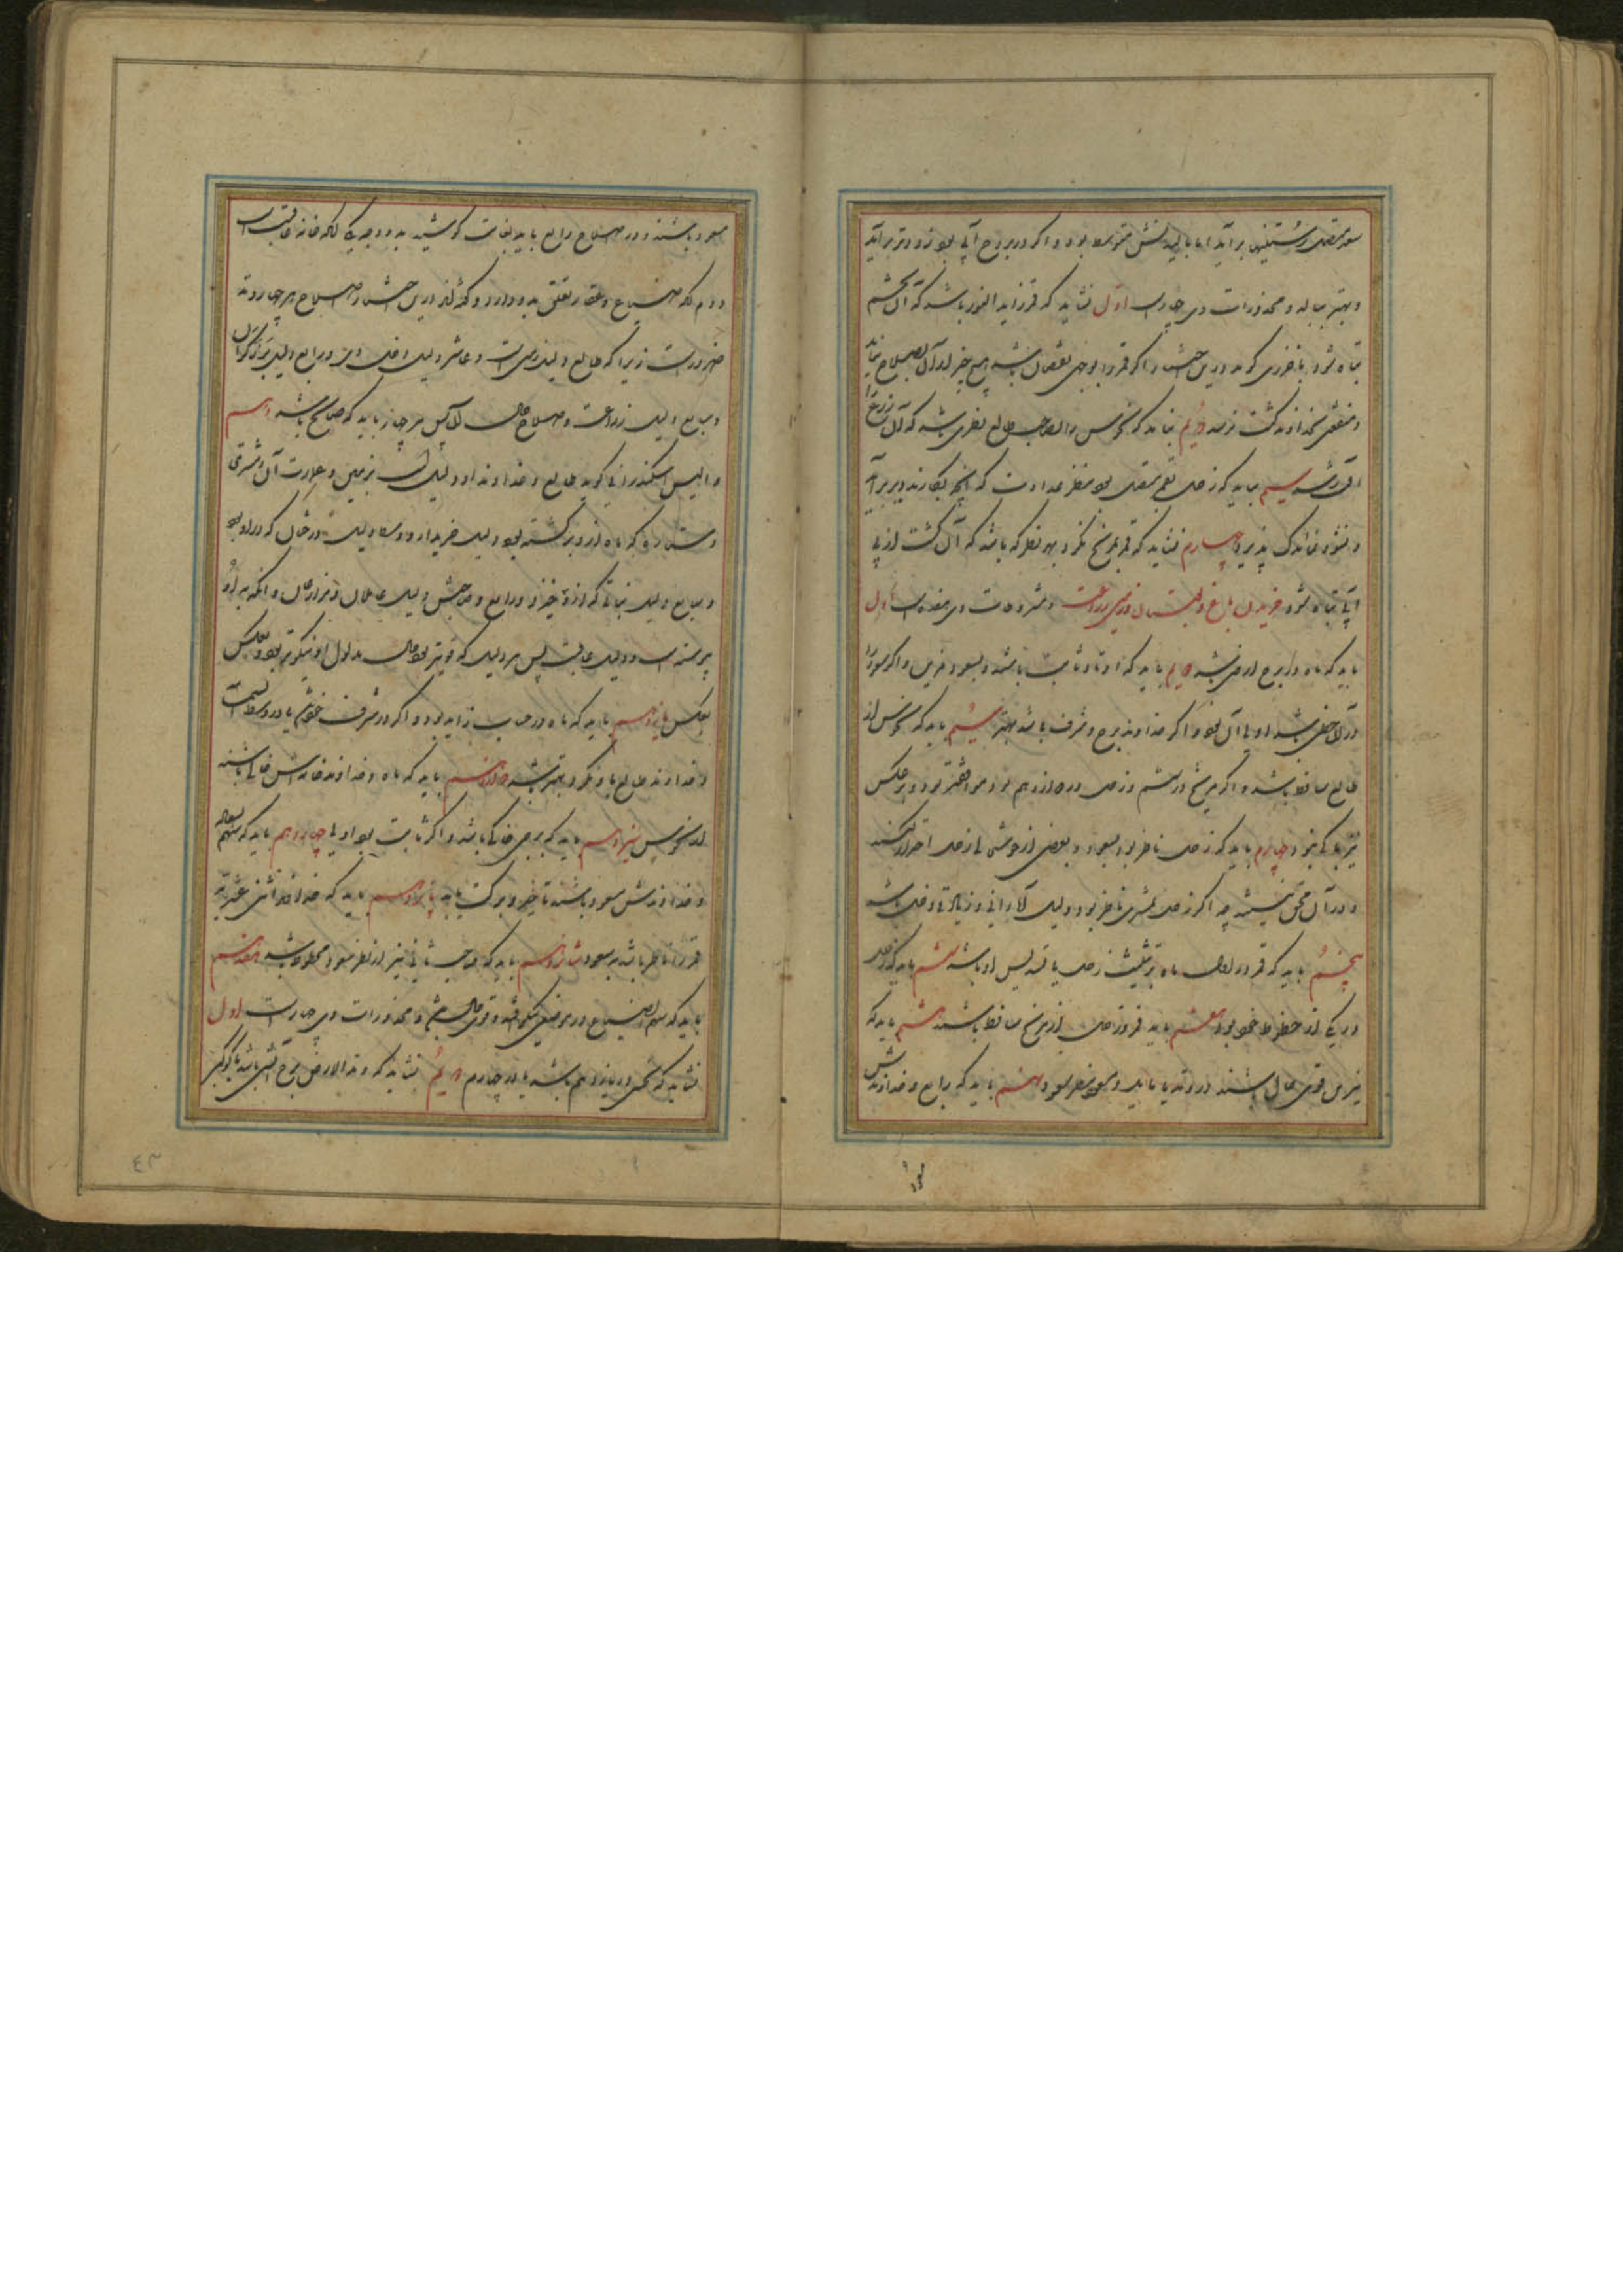 سعود متصل رستنیها برآید اما بالیدنش متوسط بود و اگر در بروج آبی بود زودتر برآید
و بهتر ببالد و محذورات وی چهارست اول نشاید که قمر زاید النور باشد که آن تخم
تباه شود باخرزی گوید درین اختیار اگر قمر را بوجهی نقصان باشد هیچ چیز از آن بصلاح نیاید
و منفعتی بخداوند کشت نرسد دویم نباید که نحوس را بصاحب طالع نظری باشد که آن زرع را
آفتی رسد سیم نباید که زحل بقمر متصل بود بنظر عداوت که آنچه بکارند دیر برآید
و نشو و نما اندک پذیرد چهارم نشاید که قمر بمریخ نگرد بهر نظر که باشد که آن کشت از بی
آبی تباه شود خریدن باغ و بستان و زمین زراعت و مشروطات وی هفده است اول
باید که ماه در بروج ارضی باشد دویم باید که اوتاد ثابت باشند و مسعود مزین و اگر سعود را
در آن حظی باشد اولی آن بود و اگر خداوند برج و شرف باشد بهتر سیم باید که نحوس از
طالع ساقط باشد و اگر مریخ در ششم و زحل در دوازدهم بود موافقتر بود و بر عکس
نیز باکی نبود چهارم باید که زحل ناظر بود بسعود و بعضی از خوشی از زحل احتراز کنند
و در آن محق نیستند چه اگر زحل بمشتری ناظر بود دلیل آبادانی و زیادتی دخل باشد
پنجم باید که قمر در اول ماه بر تثلیث زحل یا تسدیس او باشد ششم باید که زحل
در یکی از حظوظ خود بود هفتم باید قمر و زحل از مریخ ساقط باشند هشتم باید که
نیرین قوی حال باشند در وتد یا مایل وتد و بنظر سعود نهم باید که رابع و خداوندش
مسعود باشند و در اصلاح رابع باید بغایت کوشید بدو وجه یکی آنکه خانه عاقبت است
دوم آنکه ضیاع و عقار تعلق بدو دارد و گفته اند درین اختیار اصلاح هر چهار وتد
ضرورت است زیرا که طالع دلیل زمین است و عاشر دلیل دخل و رابع دلیل برزگران
و سابع دلیل زراعت و صلاح حال آن پس هر چهار باید که صالح باشد دهم
والیس اسکندرانی گوید طالع و خداوند او دلیل است بزمین و عمارت آن و مشتری
و ستاره که ماه از وی برگشته بود دلیل خریدار و وسط دلیل درختان که در او بود
و سابع دلیل نباتی که از وی خیزد و رابع و صاحبش دلیل عاملان و مزارعان و آنکه به او
پیوسته است دلیل عاقبت پس هر دلیل که قویتر بود حال مدلول او نیکوتر بود و بعکس
بعکس یازدهم باید که ماه در حساب زاید بود و اگر در شرف خود یا در وسط السماء
و خداوند طالع باو نگرد بهتر باشد دوازدهم باید که ماه و خداوند خانه اش خالی باشند
از نحوس سیزدهم باید که برجی خاکی باشد و اگر ثابت بود اولی چهاردهم باید که سهم السعاده
و خداوندش مسعود باشند تا خیر و برکت یابد پانزدهم باید که خداوند اثنی عشریه
قمر را ناظر باشد بر سعود شانزدهم باید که صاحب ثانی نیز از نظر سعود محظوظ باشد هفدهم
باید که سهم الضیاع در موضعی نیکو افتد و قوی حال باشد و محذورات وی چهارست اول
نشاید که نحسی در یازدهم باشد یا در چهارم دویم نشاید که وتد الارض برج آتشی باشد یا کوکبی
۴۳